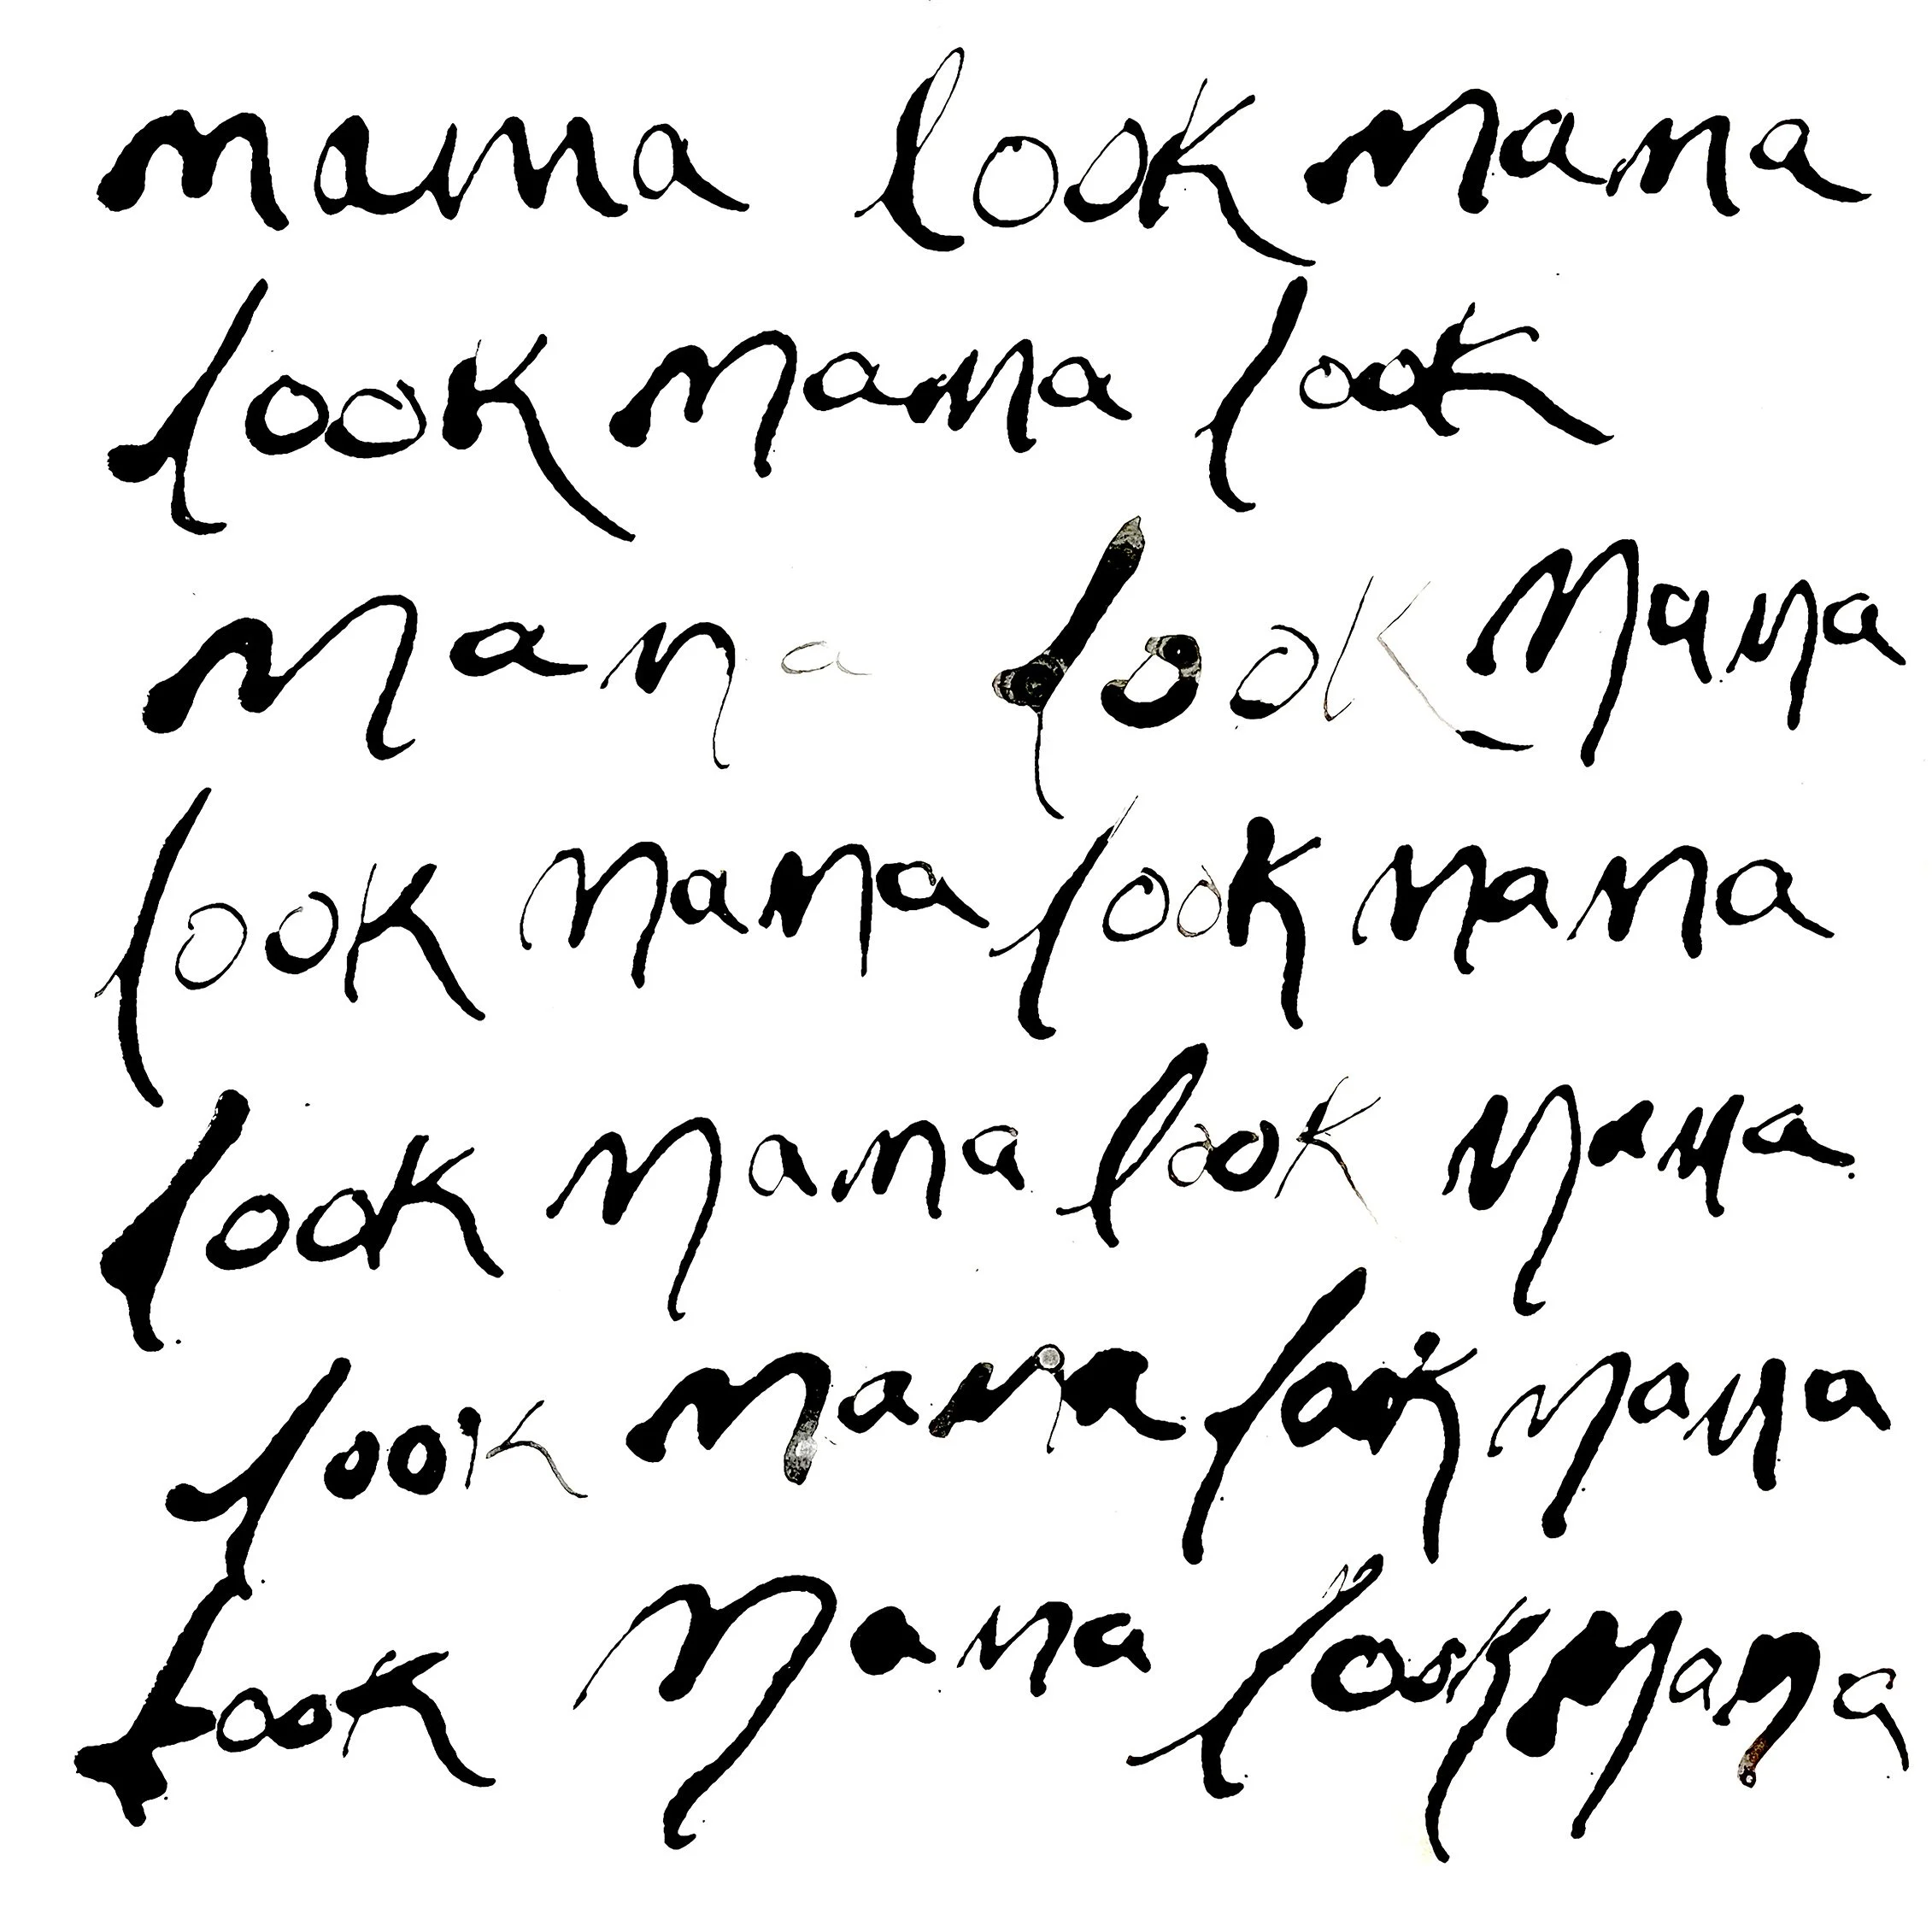 mama look mama
look mama look
mama look mama
look mama look mama
look mama look mama
look mama look mama
look mama look mama